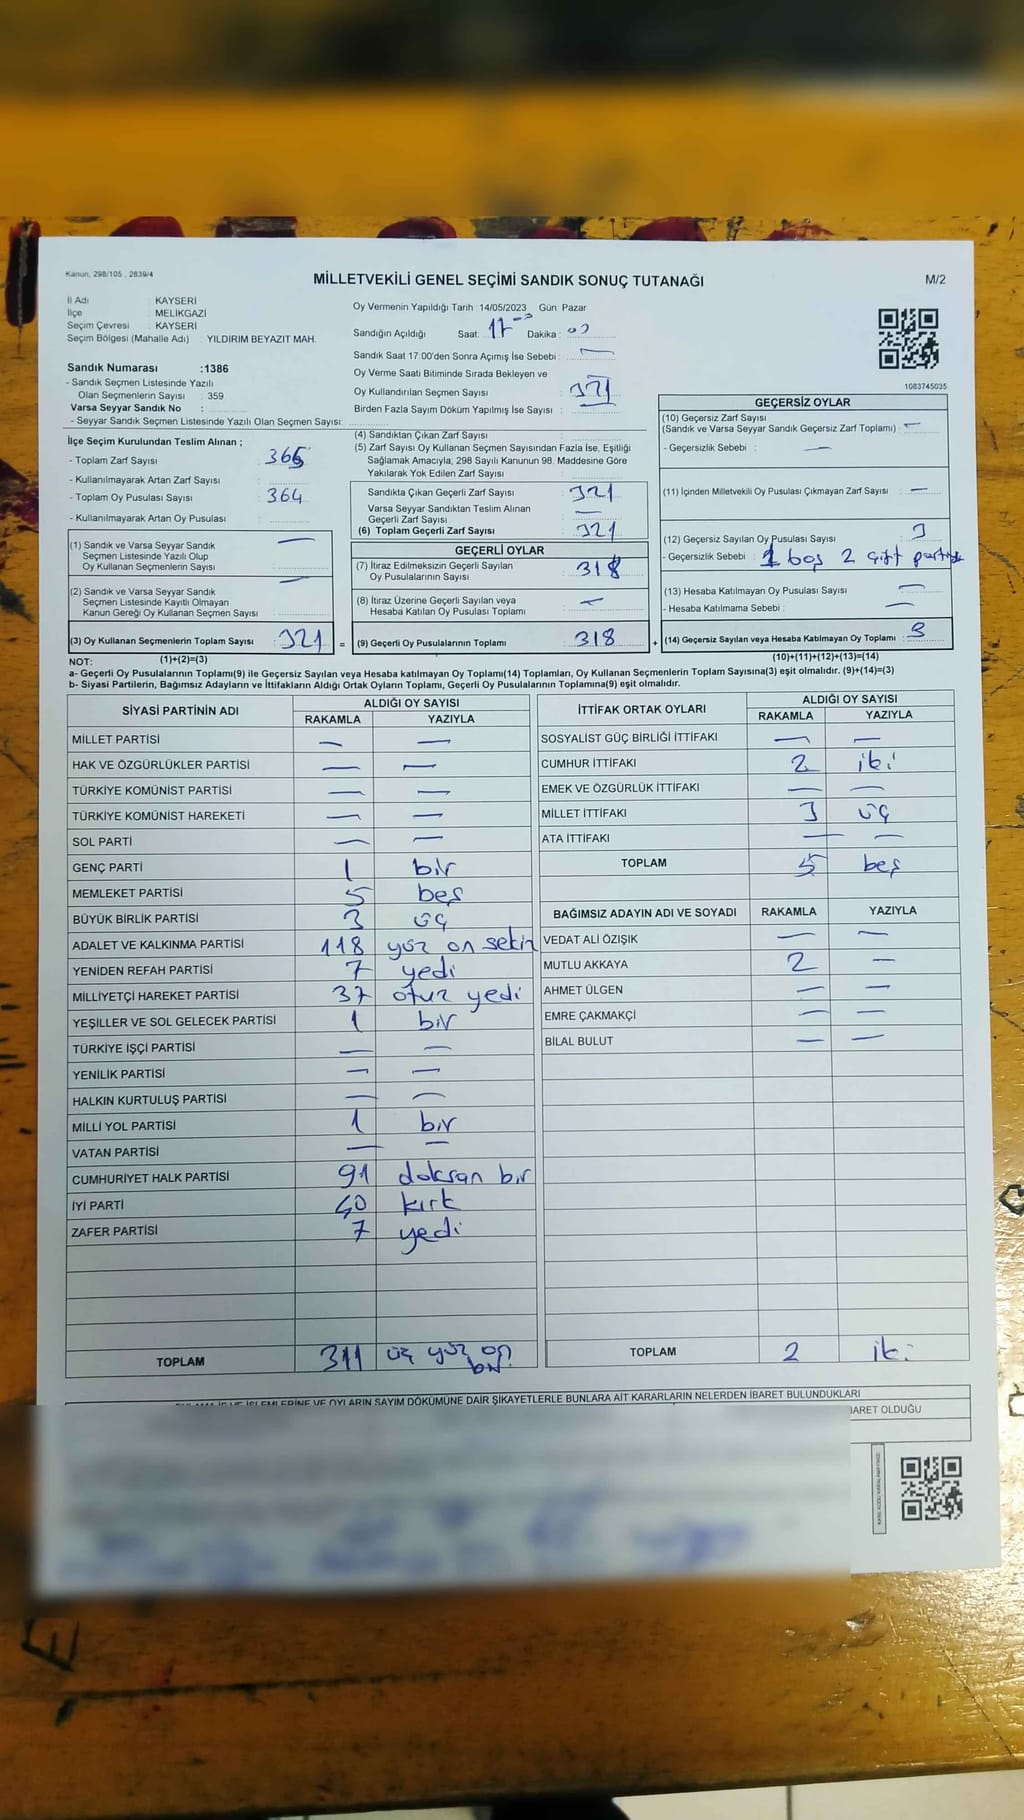 Kanun, 298/105 , 2839/4
MİLLETVEKİLİ GENEL SEÇİMİ SANDIK SONUÇ TUTANAĞI
M/2
İl Adı : KAYSERİ
İlçe : MELİKGAZİ
Seçim Çevresi : KAYSERİ
Seçim Bölgesi (Mahalle Adı) : YILDIRIM BEYAZIT MAH.
Sandık Numarası :1386
- Sandık Seçmen Listesinde Yazılı
Olan Seçmenlerin Sayısı : 359
Varsa Seyyar Sandık No :
- Seyyar Sandık Seçmen Listesinde Yazılı Olan Seçmen Sayısı:
Oy Vermenin Yapıldığı Tarih :14/05/2023 Gün: Pazar
Sandığın Açıldığı Saat: 17 Dakika :
Sandık Saat 17:00'den Sonra Açımış İse Sebebi : —
Oy Verme Saati Bitiminde Sırada Bekleyen ve
Oy Kullandırılan Seçmen Sayısı : 321
Birden Fazla Sayım Döküm Yapılmış İse Sayısı :
1083745035
İlçe Seçim Kurulundan Teslim Alınan ;
- Toplam Zarf Sayısı : 365
- Kullanılmayarak Artan Zarf Sayısı :
- Toplam Oy Pusulası Sayısı : 364
- Kullanılmayarak Artan Oy Pusulası :
(1) Sandık ve Varsa Seyyar Sandık
Seçmen Listesinde Yazılı Olup
Oy Kullanan Seçmenlerin Sayısı : —
(2) Sandık ve Varsa Seyyar Sandık
Seçmen Listesinde Kayıtlı Olmayan
Kanun Gereği Oy Kullanan Seçmen Sayısı : —
(3) Oy Kullanan Seçmenlerin Toplam Sayısı : 321
(1)+(2)=(3)
(4) Sandıktan Çıkan Zarf Sayısı :
(5) Zarf Sayısı Oy Kullanan Seçmen Sayısından Fazla İse, Eşitliği
Sağlamak Amacıyla, 298 Sayılı Kanunun 98. Maddesine Göre
Yakılarak Yok Edilen Zarf Sayısı :
Sandıkta Çıkan Geçerli Zarf Sayısı : 321
Varsa Seyyar Sandıktan Teslim Alınan
Geçerli Zarf Sayısı : —
(6) Toplam Geçerli Zarf Sayısı : 321
GEÇERLİ OYLAR
(7) İtiraz Edilmeksizin Geçerli Sayılan
Oy Pusulalarının Sayısı : 318
(8) İtiraz Üzerine Geçerli Sayılan veya
Hesaba Katılan Oy Pusulası Toplamı : —
= (9) Geçerli Oy Pusulalarının Toplamı : 318
GEÇERSİZ OYLAR
(10) Geçersiz Zarf Sayısı
(Sandık ve Varsa Seyyar Sandık Geçersiz Zarf Toplamı) : —
- Geçersizlik Sebebi : —
(11) İçinden Milletvekili Oy Pusulası Çıkmayan Zarf Sayısı : —
(12) Geçersiz Sayılan Oy Pusulası Sayısı : 3
- Geçersizlik Sebebi : 1 boş 2 çift
(13) Hesaba Katılmayan Oy Pusulası Sayısı : —
- Hesaba Katılmama Sebebi : —
+ (14) Geçersiz Sayılan veya Hesaba Katılmayan Oy Toplamı : 3
(10)+(11)+(12)+(13)=(14)
NOT:
a- Geçerli Oy Pusulalarının Toplamı(9) ile Geçersiz Sayılan veya Hesaba katılmayan Oy Toplamı(14) Toplamları, Oy Kullanan Seçmenlerin Toplam Sayısına(3) eşit olmalıdır. (9)+(14)=(3)
b- Siyasi Partilerin, Bağımsız Adayların ve İttifakların Aldığı Ortak Oyların Toplamı, Geçerli Oy Pusulalarının Toplamına(9) eşit olmalıdır.
SİYASİ PARTİNİN ADI ALDIĞI OY SAYISI
RAKAMLA YAZIYLA
MİLLET PARTİSİ — —
HAK VE ÖZGÜRLÜKLER PARTİSİ — —
TÜRKİYE KOMÜNİST PARTİSİ — —
TÜRKİYE KOMÜNİST HAREKETİ — —
SOL PARTİ — —
GENÇ PARTİ 1 bir
MEMLEKET PARTİSİ 5 beş
BÜYÜK BİRLİK PARTİSİ 3 üç
ADALET VE KALKINMA PARTİSİ 118 yüz on sekiz
YENİDEN REFAH PARTİSİ 7 yedi
MİLLİYETÇİ HAREKET PARTİSİ 37 otuz yedi
YEŞİLLER VE SOL GELECEK PARTİSİ 1 bir
TÜRKİYE İŞÇİ PARTİSİ — —
YENİLİK PARTİSİ — —
HALKIN KURTULUŞ PARTİSİ — —
MİLLİ YOL PARTİSİ 1 bir
VATAN PARTİSİ — —
CUMHURİYET HALK PARTİSİ 91 doksan bir
İYİ PARTİ 40 kırk
ZAFER PARTİSİ 7 yedi
TOPLAM 311 üç yüz on bir
İTTİFAK ORTAK OYLARI ALDIĞI OY SAYISI
RAKAMLA YAZIYLA
SOSYALİST GÜÇ BİRLİĞİ İTTİFAKI — —
CUMHUR İTTİFAKI 2 iki
EMEK VE ÖZGÜRLÜK İTTİFAKI — —
MİLLET İTTİFAKI 3 üç
ATA İTTİFAKI — —
TOPLAM 5 beş
BAĞIMSIZ ADAYIN ADI VE SOYADI RAKAMLA YAZIYLA
VEDAT ALİ ÖZIŞIK — —
MUTLU AKKAYA 2 —
AHMET ÜLGEN — —
EMRE ÇAKMAKÇİ — —
BİLAL BULUT — —
TOPLAM 2 iki
OYLARIN SAYIM DÖKÜMÜNE DAİR ŞİKAYETLERLE BUNLARA AİT KARARLARIN NELERDEN İBARET BULUNDUKLARI
OLDUĞU